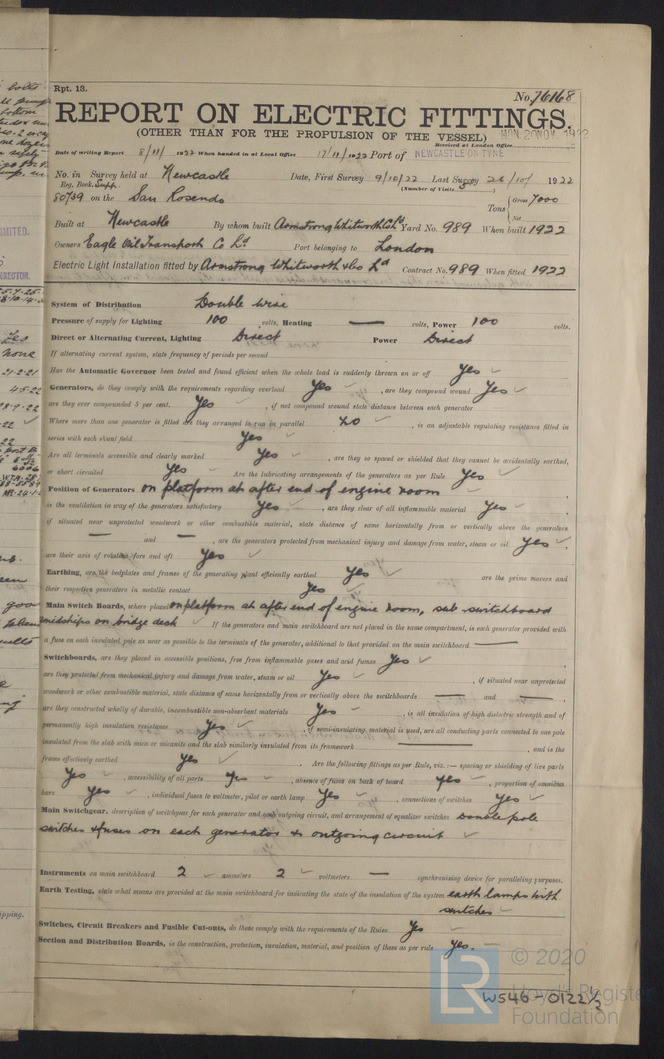 Rpt. 13.
No. 76168
REPORT ON ELECTRIC FITTINGS.
(OTHER THAN FOR THE PROPULSION OF THE VESSEL)
Received at London Office MON. 20 NOV. 1922
Date of writing Report 8/11/ 1922 When handed in at Local Office 17/11/1922 Port of NEWCASTLE ON TYNE
No. in Survey held at Newcastle Date, First Survey 9/10/22 Last Survey 26/10/ 1922
Reg. Book. Supp. (Number of Visits 5)
80739 on the San Rosendo Tons { Gross 7000
Net
Built at Newcastle By whom built Armstrong Whitworth & Co Ld Yard No. 989 When built 1922
Owners Eagle Oil Transport Co Ld Port belonging to London
Electric Light Installation fitted by Armstrong Whitworth & Co Ld Contract No. 989 When fitted 1922
System of Distribution Double wire
Pressure of supply for Lighting 100 volts, Heating — volts, Power 100 volts.
Direct or Alternating Current, Lighting Direct Power Direct
If alternating current system, state frequency of periods per second
Has the Automatic Governor been tested and found efficient when the whole load is suddenly thrown on or off Yes
Generators, do they comply with the requirements regarding overload Yes, are they compound wound Yes
are they over compounded 5 per cent. Yes, if not compound wound state distance between each generator
Where more than one generator is fitted are they arranged to run in parallel no, is an adjustable regulating resistance fitted in
series with each shunt field Yes
Are all terminals accessible and clearly marked Yes, are they so spaced or shielded that they cannot be accidentally earthed,
or short circuited Yes Are the lubricating arrangements of the generators as per Rule Yes
Position of Generators on platform at after end of engine room
is the ventilation in way of the generators satisfactory Yes, are they clear of all inflammable material Yes,
if situated near unprotected woodwork or other combustible material, state distance of same horizontally from or vertically above the generators
— and —, are the generators protected from mechanical injury and damage from water, steam or oil Yes,
are their axis of rotation fore and aft Yes
Earthing, are the bedplates and frames of the generating plant efficiently earthed Yes are the prime movers and
their respective generators in metallic contact Yes
Main Switch Boards, where placed on platform at after end of engine room, sub switchboard
amidships on bridge deck If the generators and main switchboard are not placed in the same compartment, is each generator provided with
a fuse on each insulated pole as near as possible to the terminals of the generator, additional to that provided on the main switchboard —
Switchboards, are they placed in accessible positions, free from inflammable gases and acid fumes Yes,
are they protected from mechanical injury and damage from water, steam or oil Yes, if situated near unprotected
woodwork or other combustible material, state distance of same horizontally from or vertically above the switchboards — and —,
are they constructed wholly of durable, incombustible non-absorbent materials Yes, is all insulation of high dielectric strength and of
permanently high insulation resistance Yes, if semi-insulating material is used, are all conducting parts connected to one pole
insulated from the slab with mica or micanite and the slab similarly insulated from its framework —, and is the
frame effectively earthed Yes. Are the following fittings as per Rule, viz.:— spacing or shielding of live parts
Yes, accessibility of all parts Yes, absence of fuses on back of board Yes, proportion of omnibus
bars Yes, individual fuses to voltmeter, pilot or earth lamp Yes, connections of switches Yes
Main Switchgear, description of switchgear for each generator and each outgoing circuit, and arrangement of equalizer switches Double pole
switches & fuses on each generator & outgoing circuit
Instruments on main switchboard 2 ammeters 2 voltmeters — synchronising device for paralleling purposes.
Earth Testing, state what means are provided at the main switchboard for indicating the state of the insulation of the system earth lamps with
switches
Switches, Circuit Breakers and Fusible Cut-outs, do these comply with the requirements of the Rules Yes
Section and Distribution Boards, is the construction, protection, insulation, material, and position of them as per rule Yes.
© 2020
Lloyd's Register
Foundation
W546-0122 1/2